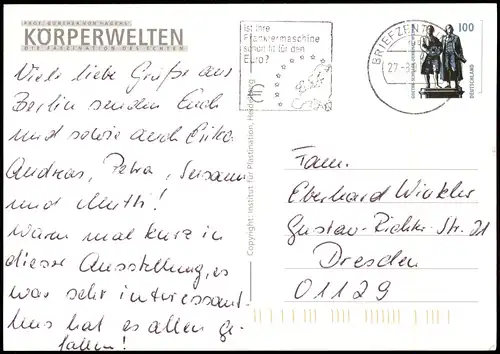 PROF. GUNTHER VON HAGENS'
KÖRPERWELTEN
DIE FASZINATION DES ECHTEN
Viele liebe Grüße aus
Berlin senden Euch
und sowie auch Erika
Andreas, Petra, Susann
und Mutti!
Waren mal kurz in
dieser Ausstellung, es
war sehr interessant
Uns hat es allen ge-
fallen!
Copyright: Institut für Plastination, Heidelberg
Ist Ihre
Frankiermaschine
schon fit für den
Euro?
BRIEFZENT
27.-8.
100
DEUTSCHLAND
Fam.
Eberhard Winkler
Gustav-Richter-Str. 21
Dresden
01129